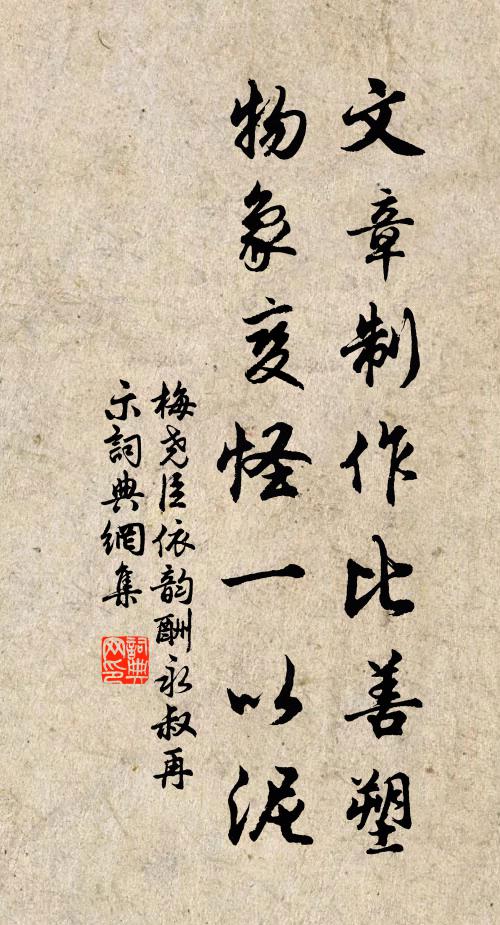 文章制作比善塑
物象变怪一以泥
梅尧臣依韵酬永叔再
示詞典網集
詞典
网印